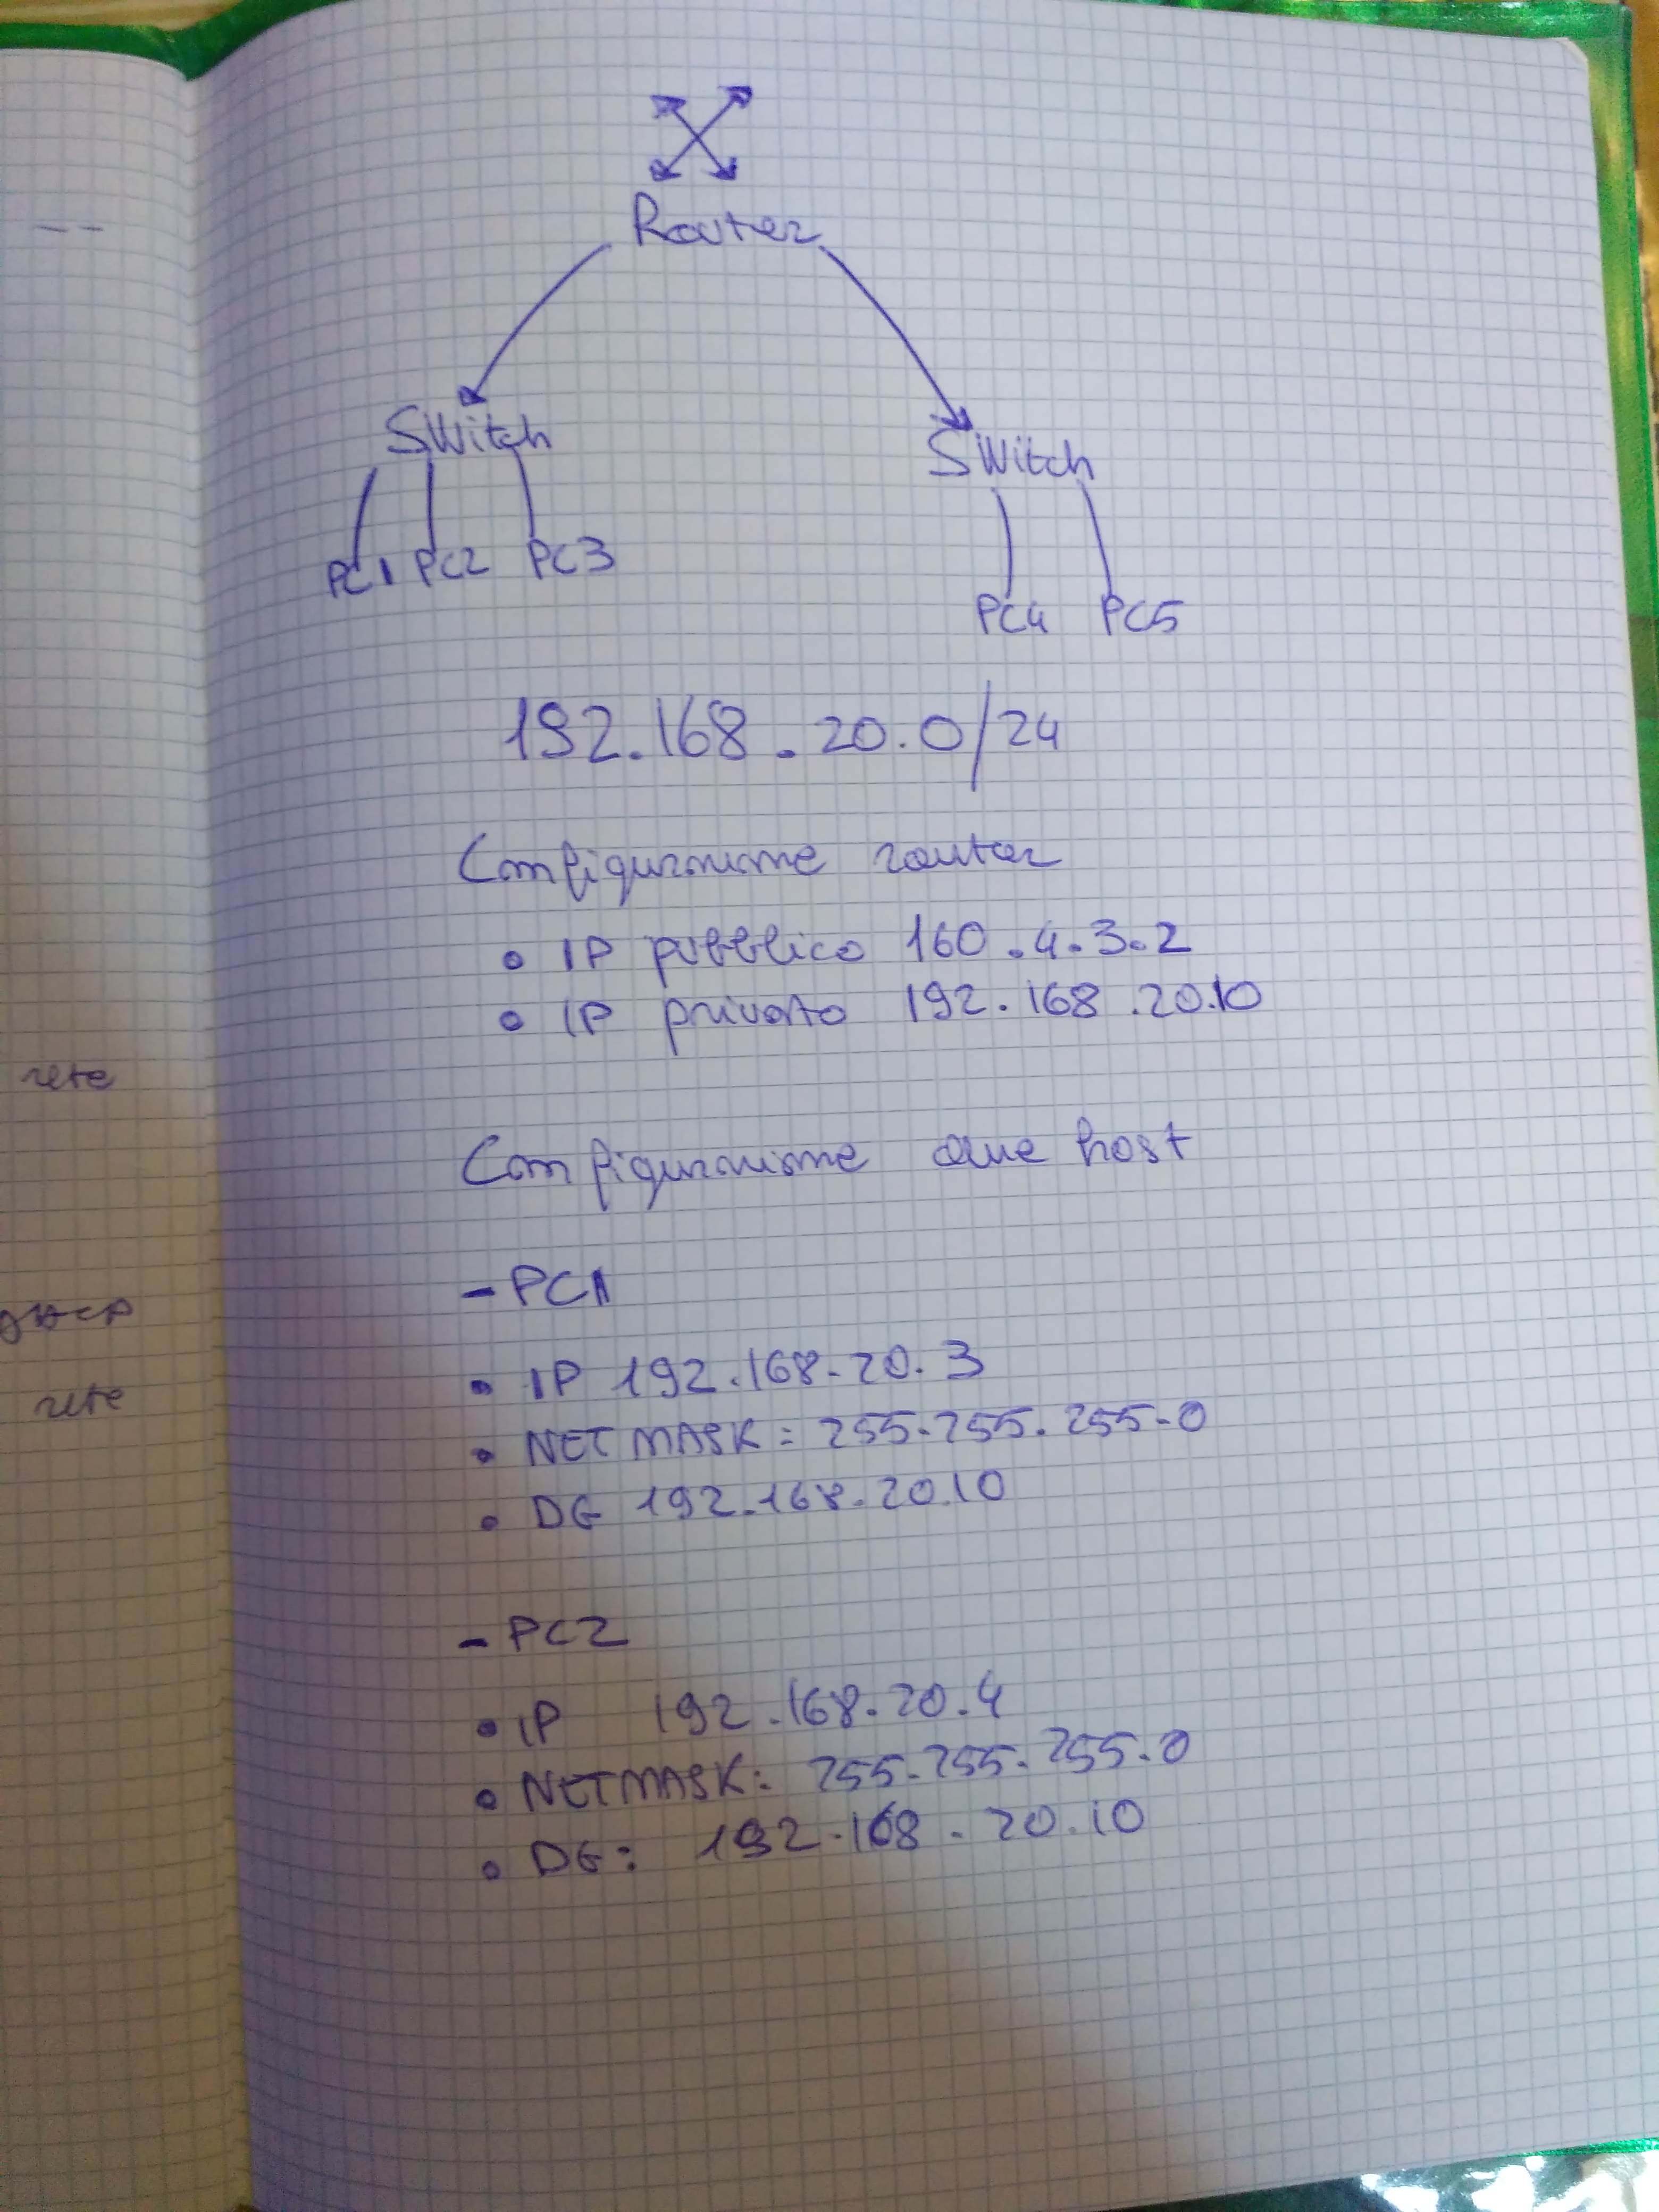 Router
Switch
Switch
PC1 PC2 PC3
PC4 PC5
192.168.20.0/24
Configurazione router
• IP pubblico 160.4.3.2
• IP privato 192.168.20.10
rete
Configurazione due host
- PC1
DHCP
• IP 192.168.20.3
rete
• NETMASK: 255.255.255.0
• DG 192.168.20.10
- PC2
• IP 192.168.20.4
• NETMASK: 255.255.255.0
• DG: 192.168.20.10